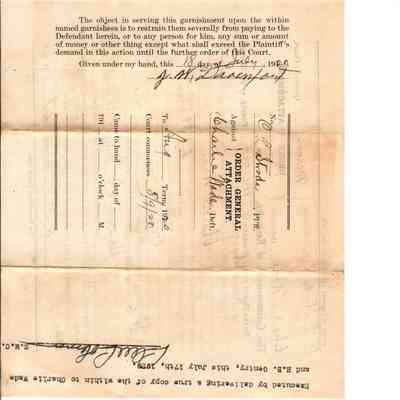 The object in serving this garnishment upon the within
named garnishees is to restrain them severally from paying to the
Defendant herein, or to any person for him, any sum or amount
of money or other thing except what shall exceed the Plaintiff's
demand in this action until the further order of this Court.
Given under my hand, this 18 day of July 1920
No.
Pltff.
Against
ORDER GENERAL
ATTACHMENT
Charlie Wade, Deft.
To Aug Term, 1920
Court commences 8/9/20
Came to hand day of
191 at o'clock M.
Executed by delivering a true copy of the within to Charlie Wade
and E.E. Gentry, this July 17th, 1920
S.W.C.